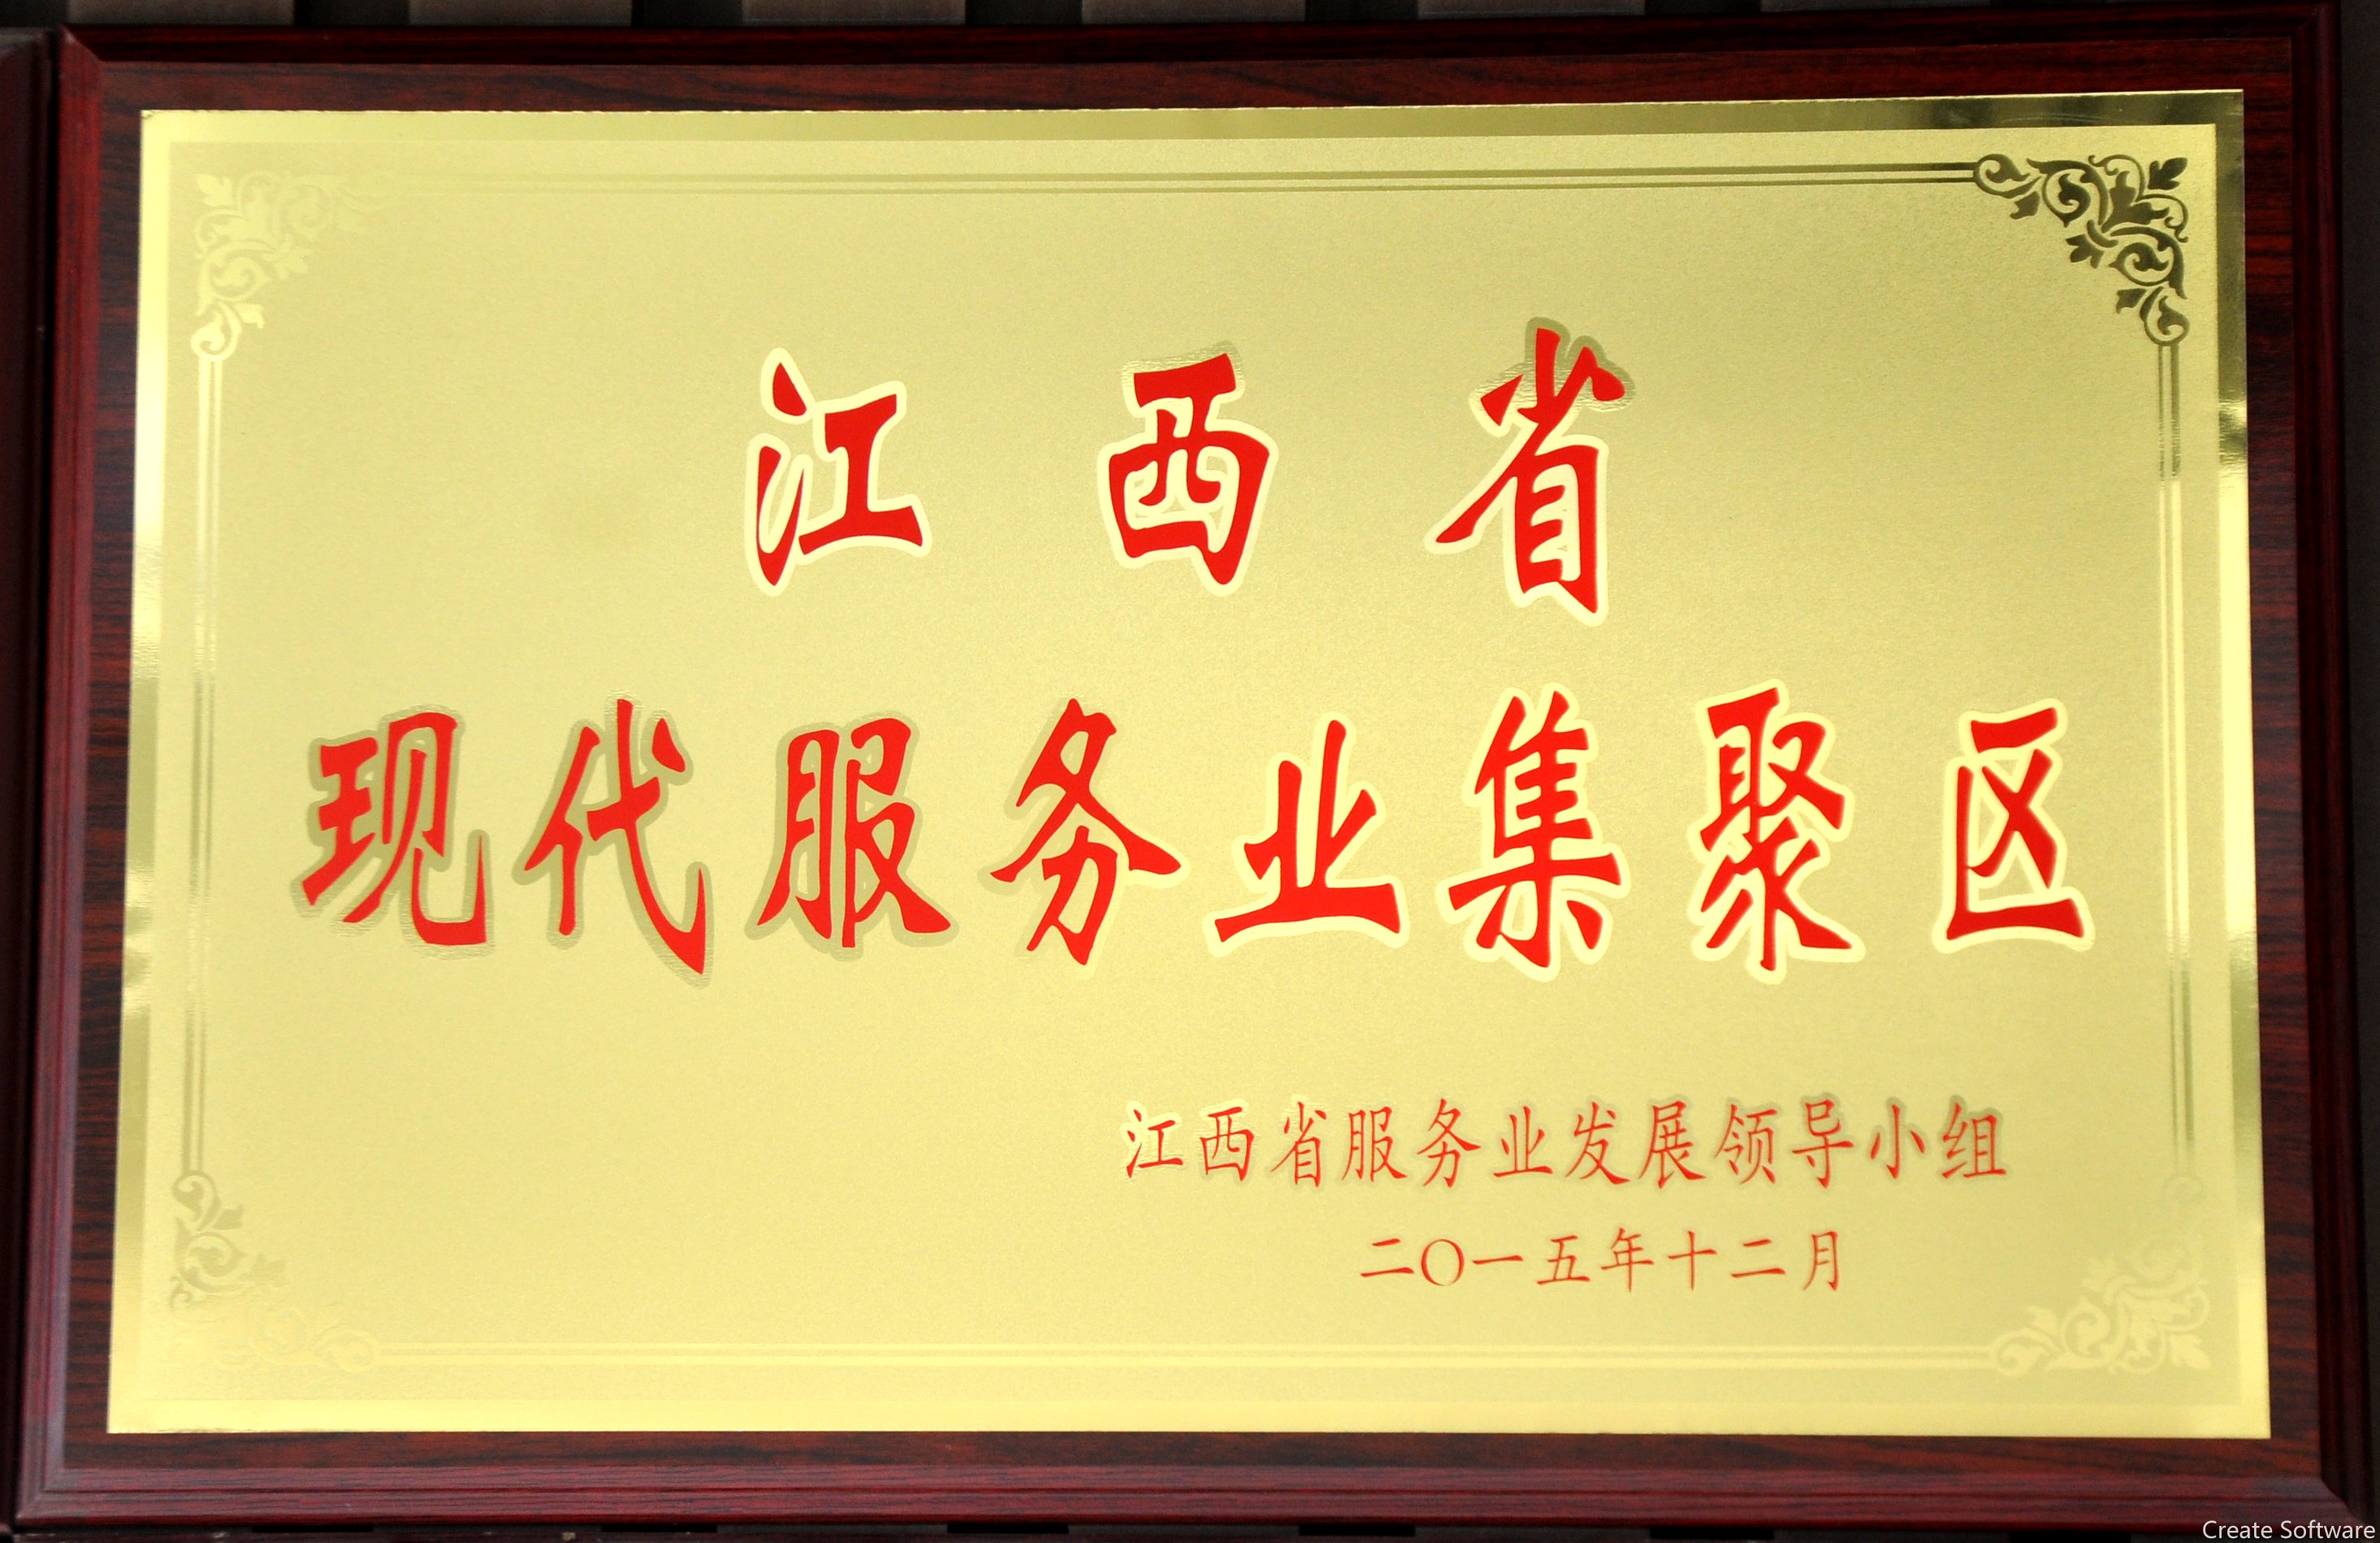 江西省
现代服务业集聚区
江西省服务业发展领导小组
二〇一五年十二月
Create Software